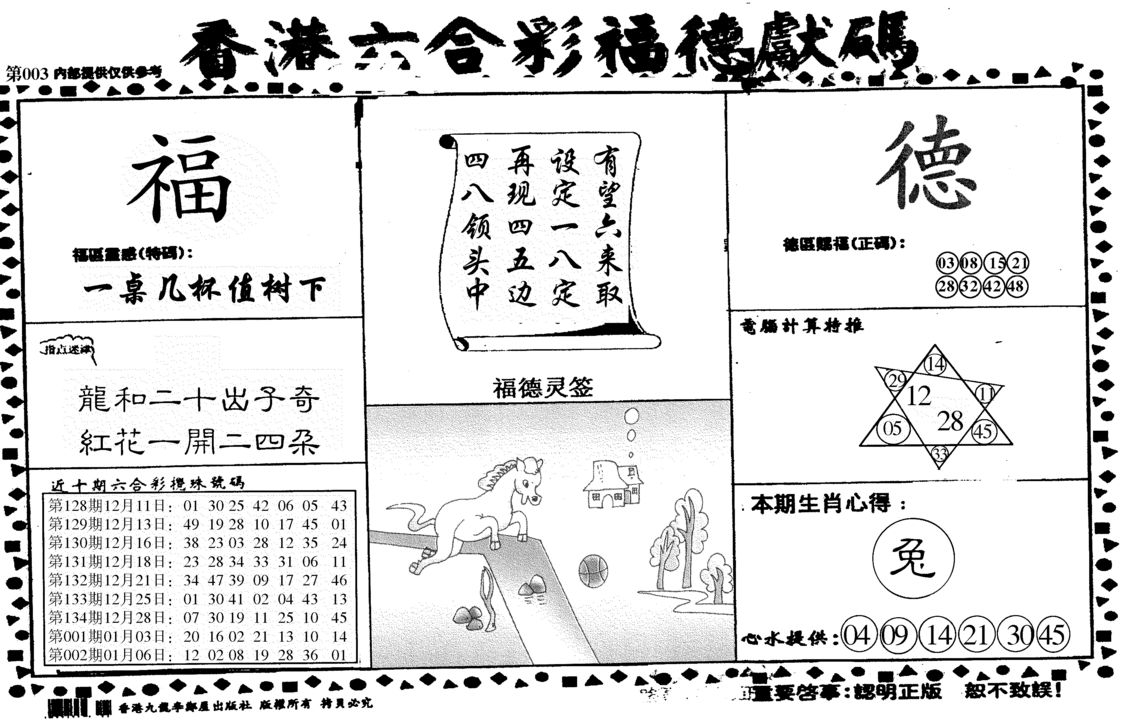 香港六合彩福德獻碼
第003 内部提供仅供参考
福
福區靈感(特碼):
一桌几杯值树下
指点迷津
龍和二十出子奇
紅花一開二四朵
近十期六合彩攪珠號碼
第128期12月11日: 01 30 25 42 06 05 43
第129期12月13日: 49 19 28 10 17 45 01
第130期12月16日: 38 23 03 28 12 35 24
第131期12月18日: 23 28 34 33 31 06 11
第132期12月21日: 34 47 39 09 17 27 46
第133期12月25日: 01 30 41 02 04 43 13
第134期12月28日: 07 30 19 11 25 10 45
第001期01月03日: 20 16 02 21 13 10 14
第002期01月06日: 12 02 08 19 28 36 01
有望六来取
设定一八定
再现四五边
四八领头中
福德灵签
德
德區賜福(正碼):
03 08 15 21
28 32 42 48
電腦計算特推
14
29 12 11
05 28 45
33
本期生肖心得:
兔
心水提供: 04 09 14 21 30 45
重要啓事:認明正版 恕不致誤!
香港九龍李鄭屋出版社 版權所有 拷貝必究